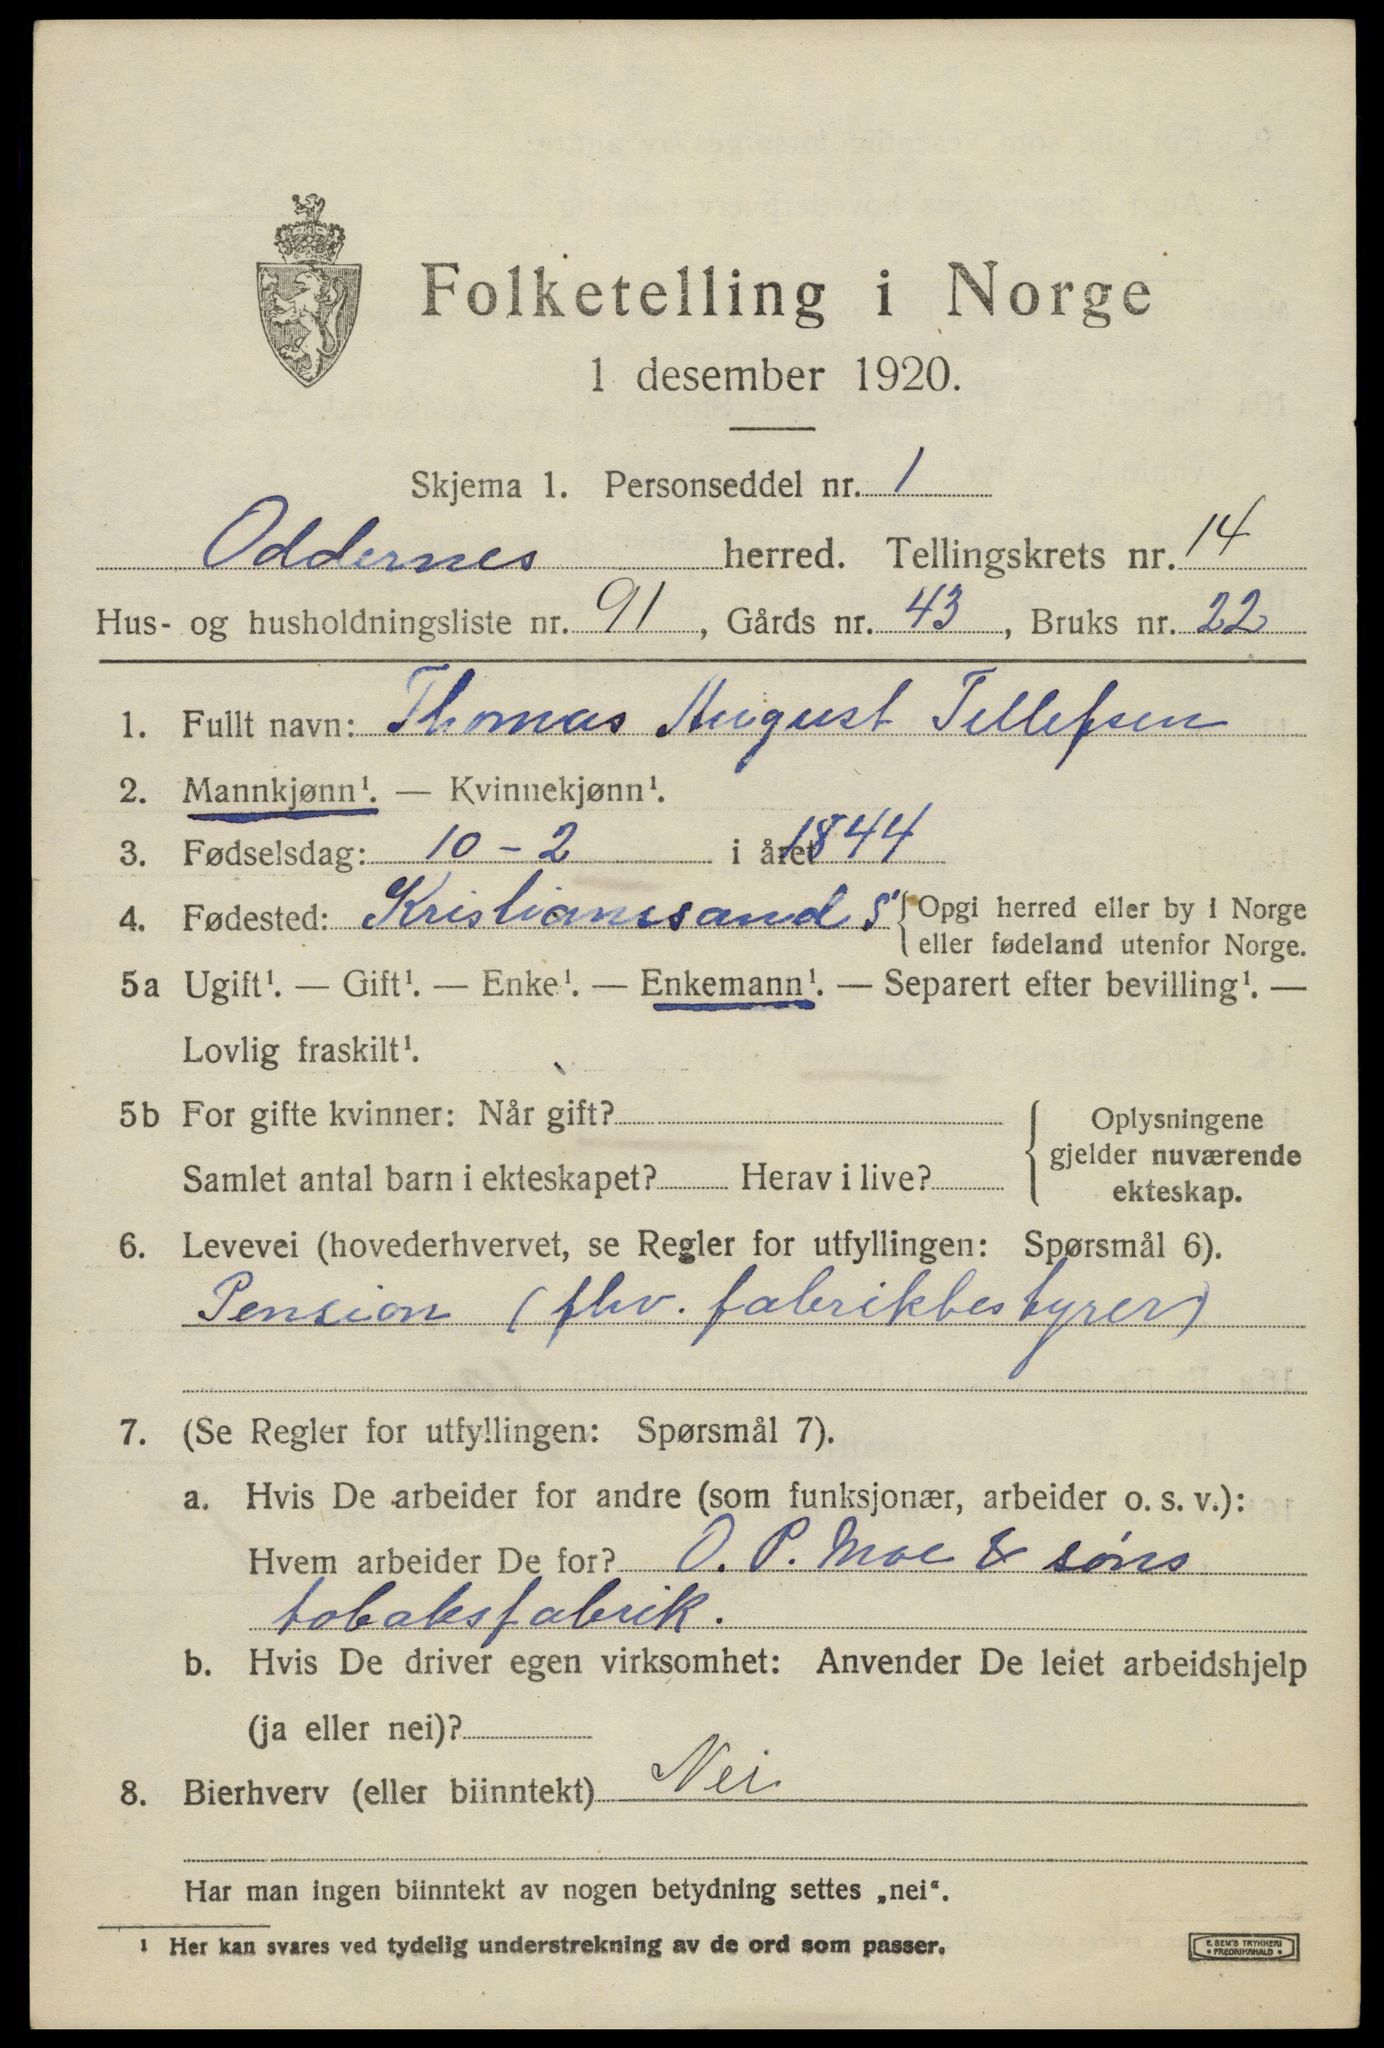 Folketelling i Norge
1 desember 1920.
Skjema 1. Personseddel nr. 1
Oddernes herred. Tellingskrets nr. 14
Hus- og husholdningsliste nr. 91, Gårds nr. 43, Bruks nr. 22
1. Fullt navn: Thomas August Tellefsen
2. Mannkjønn¹. — Kvinnekjønn¹.
3. Fødselsdag: 10 - 2 i året 1844
4. Fødested: Kristianssand S { Opgi herred eller by i Norge
eller fødeland utenfor Norge.
5a Ugift¹. — Gift¹. — Enke¹. — Enkemann¹. — Separert efter bevilling¹. —
Lovlig fraskilt¹.
5b For gifte kvinner: Når gift?
Samlet antal barn i ekteskapet? Herav i live?
{ Oplysningene
gjelder nuværende
ekteskap.
6. Levevei (hovederhvervet, se Regler for utfyllingen: Spørsmål 6).
Pension (fhv. fabrikbestyrer)
7. (Se Regler for utfyllingen: Spørsmål 7).
a. Hvis De arbeider for andre (som funksjonær, arbeider o. s. v.):
Hvem arbeider De for? O. P. Moe & søns
tobaksfabrik.
b. Hvis De driver egen virksomhet: Anvender De leiet arbeidshjelp
(ja eller nei)?
8. Bierhverv (eller biinntekt) Nei
Har man ingen biinntekt av nogen betydning settes „nei“.
¹ Her kan svares ved tydelig understrekning av de ord som passer.
E. SEM'S TRYKKERI
• FREDRIKSHALD •